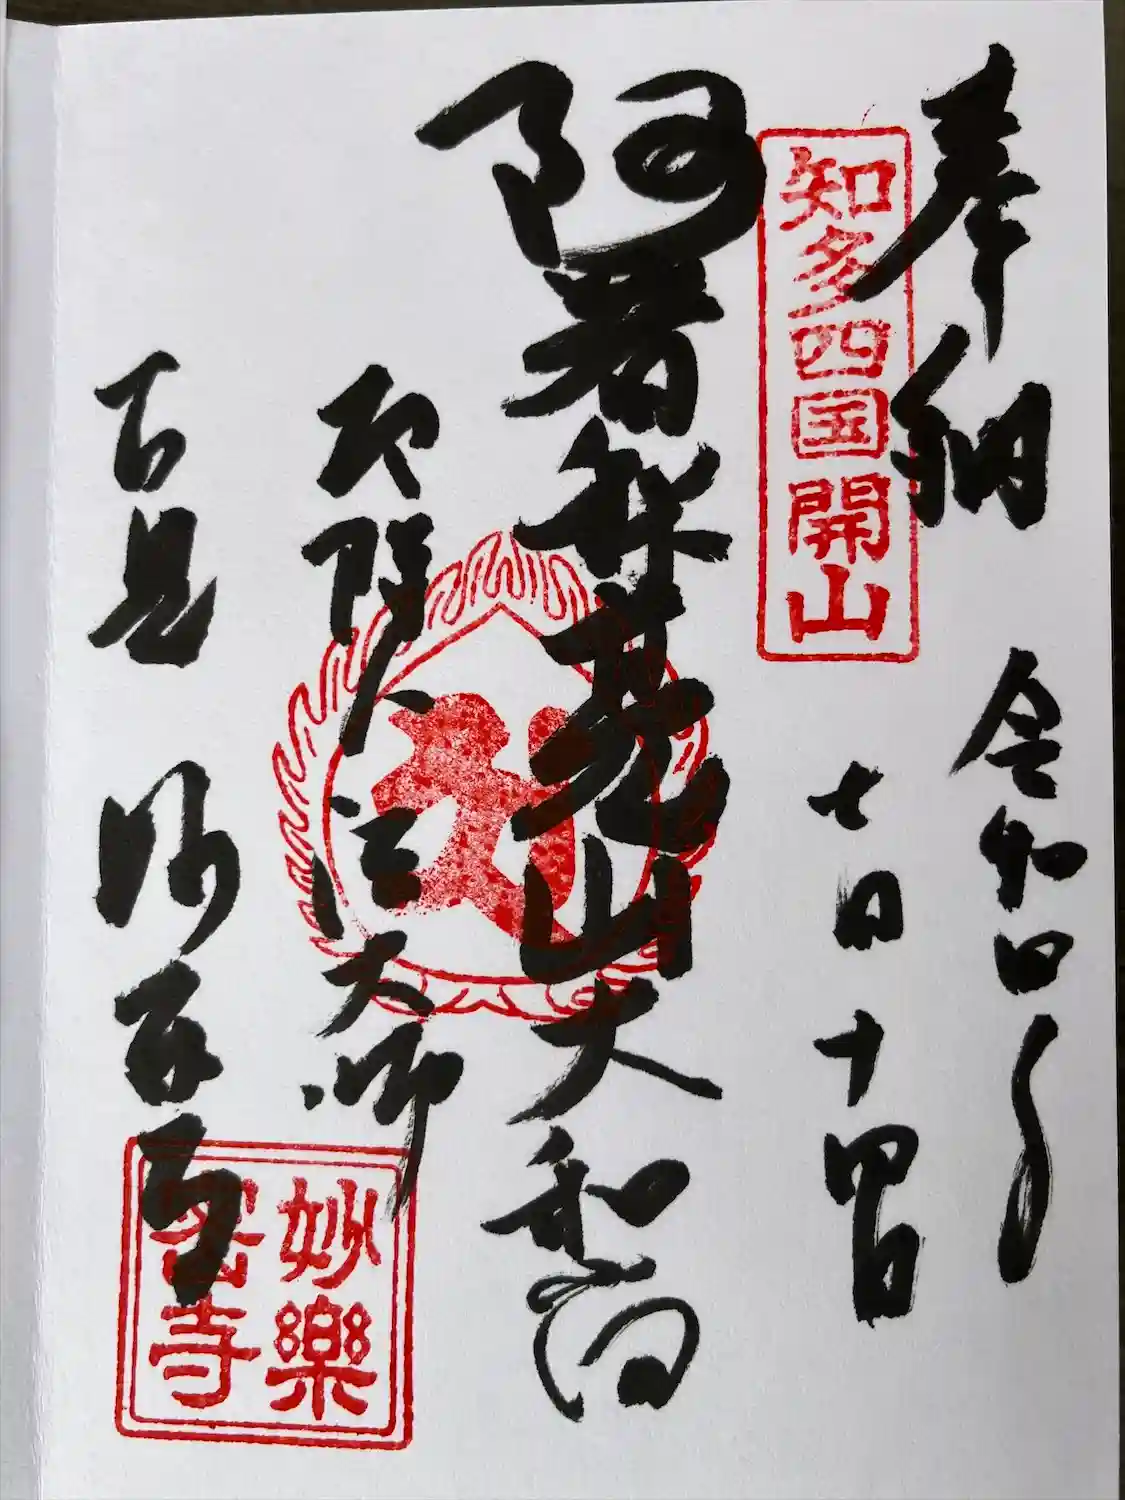 奉納
令和四年
知多四国開山
七月十四日
阿闍梨亮山大和尚
法大師
古見 妙楽寺
妙樂
寺